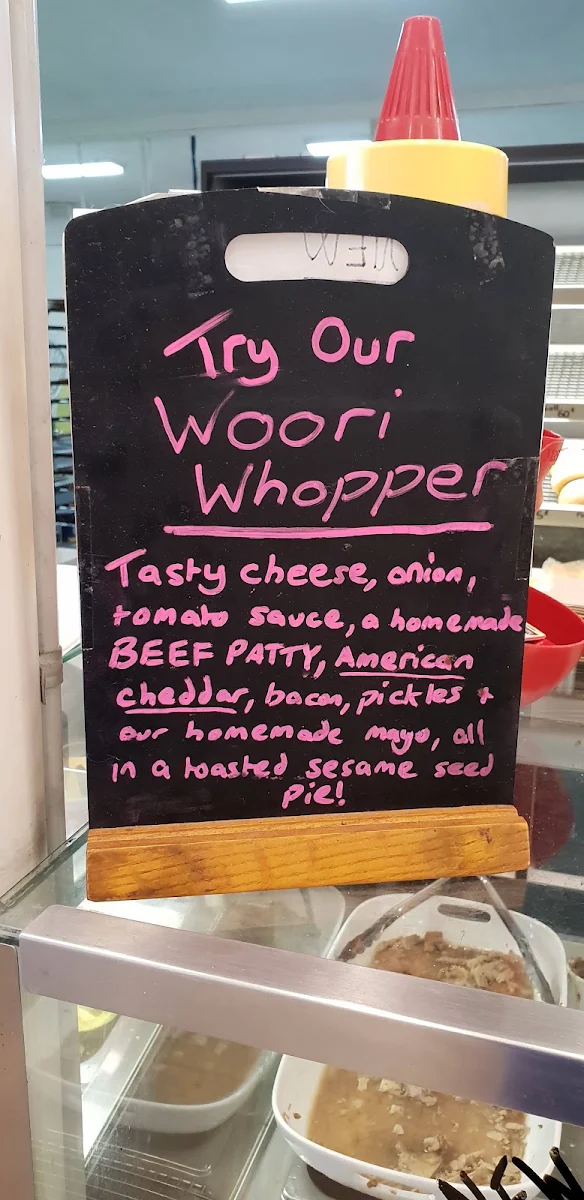 NEW
Try Our
Woori
Whopper
Tasty cheese, onion,
tomato sauce, a homemade
BEEF PATTY, American
cheddar, bacon, pickles +
our homemade mayo, all
in a toasted sesame seed
pie!